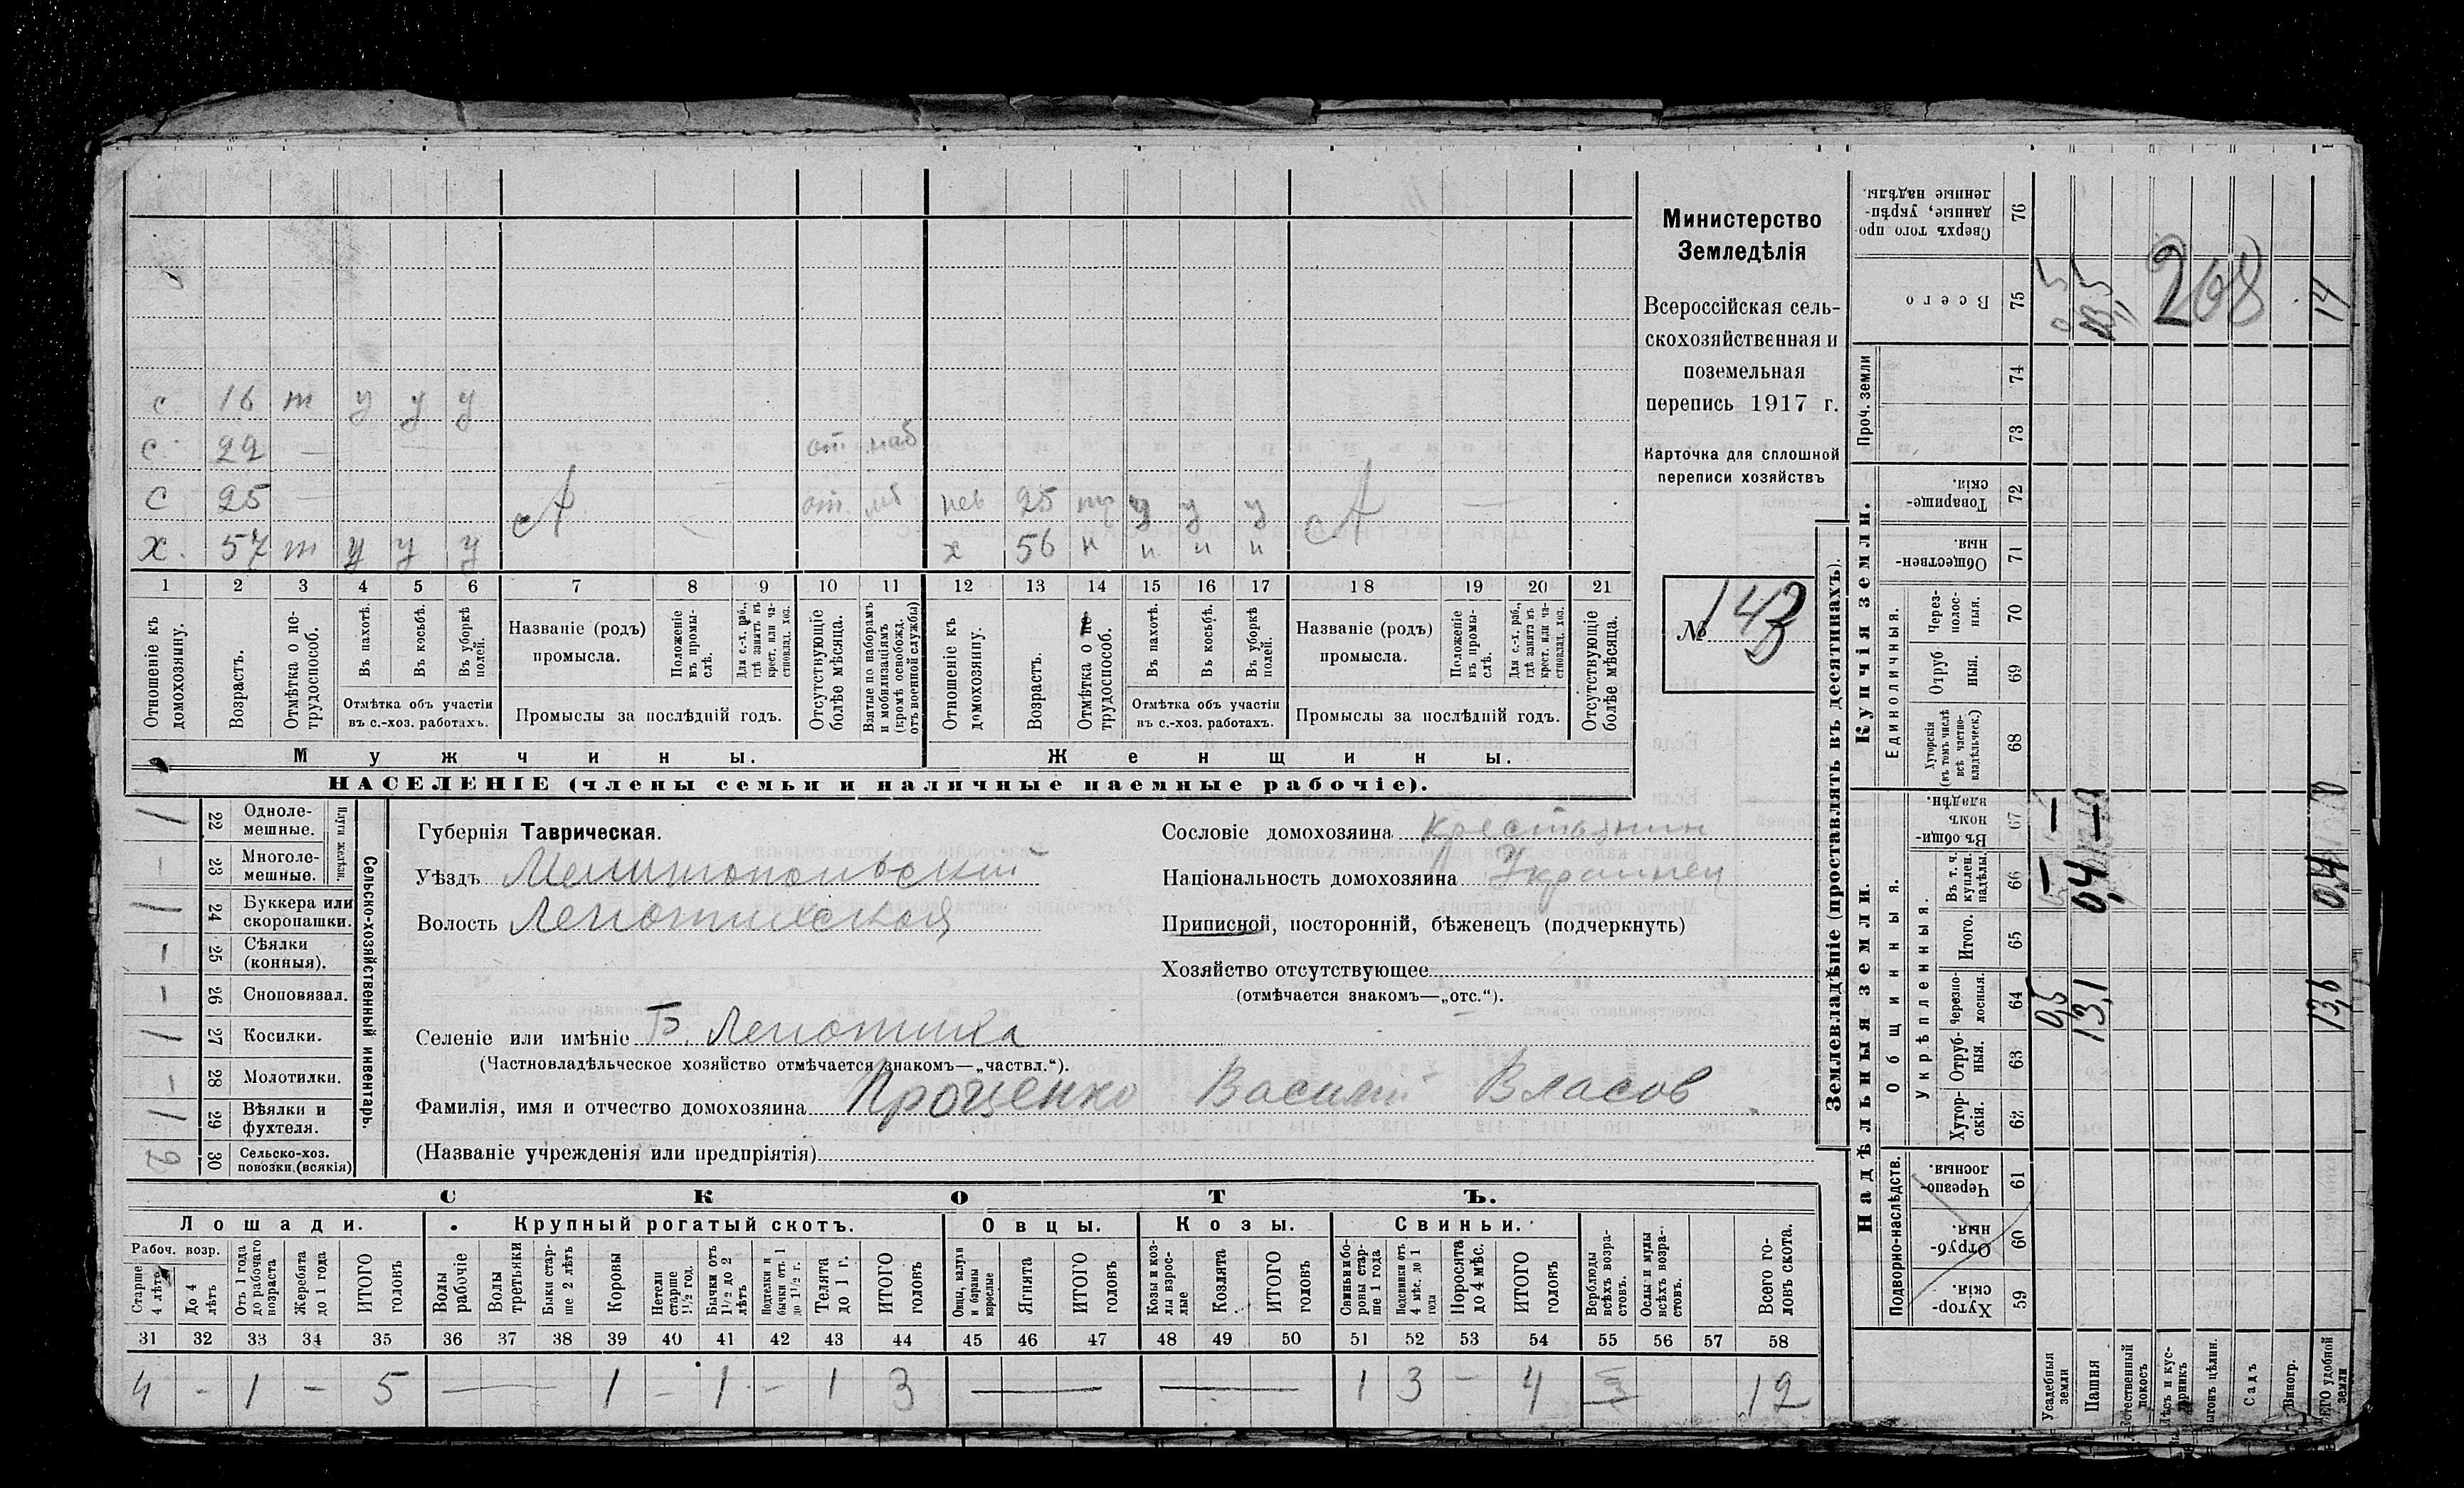 с 16 т у у у
с 22 — от. наб
с 25 — от. мб нев 25 т у у у —
х. 57 т у у у х 56 н н н н
1 2 3 4 5 6 7 8 9 10 11 12 13 14 15 16 17 18 19 20 21
Отношеніе къ домохозяину.
Возрастъ.
Отмѣтка о не-трудоспособ.
Въ пахотѣ.
Въ косьбѣ.
Въ уборкѣ полей.
Отмѣтка объ участіи
въ с.-хоз. работахъ.
Названіе (родъ)
промысла.
Положеніе въ промы-слѣ.
Для с.-х. раб., гдѣ занятъ въ крест. или ча-стновлад. хоз.
Промыслы за послѣдній годъ.
Отсутствующіе болѣе мѣсяца.
Взятые по наборамъ и мобилизаціямъ (кромѣ освобожд. отъ военной службы)
Отношеніе къ домохозяину.
Возрастъ.
Отмѣтка о не трудоспособ.
Въ пахотѣ.
Въ косьбѣ.
Въ уборкѣ полей.
Отмѣтка объ участіи
въ с.-хоз. работахъ.
Названіе (родъ)
промысла.
Положеніе въ промы-слѣ.
Для с.-х. раб., гдѣ занята въ крест. или ча-стновлад. хоз.
Промыслы за послѣдній годъ.
Отсутствующіе болѣе мѣсяца.
Мужчины. Женщины.
НАСЕЛЕНІЕ (члены семьи и наличные наемные рабочіе).
Министерство
Земледѣлія
Всероссійская сель-
скохозяйственная и
поземельная
перепись 1917 г.
Карточка для сплошной
переписи хозяйствъ
№ 143
1 22 Одноле-мешные.
— 23 Многоле-мешные.
Плуги желѣзн.
1 24 Буккера или скоропашки.
1 25 Сѣялки (конныя).
— 26 Сноповязал.
1 27 Косилки.
— 28 Молотилки.
1 29 Вѣялки и фухтеля.
2 30 Сельско-хоз. повозки (всякія)
Сельско-хозяйственный инвентарь.
Губернія Таврическая.
Уѣздъ Мелитопольскій
Волость Лепотихской
Селеніе или имѣніе Б. Лепотиха
(Частновладѣльческое хозяйство отмѣчается знакомъ—„частвл.“).
Фамилія, имя и отчество домохозяина Проценко Василий Власов
(Названіе учрежденія или предпріятія)
Сословіе домохозяина крестьянин
Національность домохозяина Украинец
Приписной, посторонній, бѣженецъ (подчеркнуть)
Хозяйство отсутствующее
(отмѣчается знакомъ—„отс.“).
СКОТЪ.
Лошади. Крупный рогатый скотъ. Овцы. Козы. Свиньи.
Рабоч. возр.
Старше 4 лѣтъ
До 4 лѣтъ
Отъ 1 года до рабочаго возраста
Жеребята до 1 года
ИТОГО головъ
Волы рабочіе
Волы третьяки
Быки стар-ше 2 лѣтъ
Коровы
Нетели старше 1½ год.
Бычки отъ 1½ до 2 лѣтъ
Подтелки и бычки отъ 1 до 1½ г.
Телята до 1 г.
ИТОГО головъ
Овцы, валухи и бараны взрослые
Ягнята
ИТОГО головъ
Козы и коз-лы взрос-лые
Козлята
ИТОГО головъ
Свиньи и бо-ровы стар-ше 1 года
Подсвинки отъ 4 мѣс. до 1 года
Поросята до 4 мѣс.
ИТОГО головъ
Верблюды всѣхъ возра-стовъ.
Ослы и мулы всѣхъ возра-стовъ.
Всего го-ловъ скота.
31 32 33 34 35 36 37 38 39 40 41 42 43 44 45 46 47 48 49 50 51 52 53 54 55 56 57 58
4 - 1 - 5 — 1 - 1 - 1 3 — — 1 3 - 4 12
Землевладѣніе (проставлять въ десятинахъ).
Купчія земли.
Надѣльныя земли.
Сверхъ того про-данные, укрѣп-ленные надѣлы. 76
Всего 75 0,5 13,5 14
268
Проч. земли 74 73
Товарище-скія. 72
Обществен-ныя. 71
Единоличныя.
Через-полос-ныя. 70
Отруб ныя. 69
Хуторскія (въ томъ числѣ всѣ частно-владѣльческ.) 68
Общинныя.
Въ общи-номъ владѣн. 67 — —
Укрѣпленныя.
Въ т. ч. куплен. надѣлы. 66 — 0,4 0,4
Итого. 65
Черезпо-лосныя. 64 0,5 13,1 13,6
Отруб-ныя. 63
Хутор-скія. 62
Подворно-наслѣдств.
Черезпо-лосныя. 61
Отруб-ныя. 60
Хутор-скія. 59
Усадебныя земли
Пашня
Естественный покосъ
Лѣсъ и кус-тарникъ
Выгонъ цѣлин.
Садъ
Виногр.
ВСЕГО удобной земли